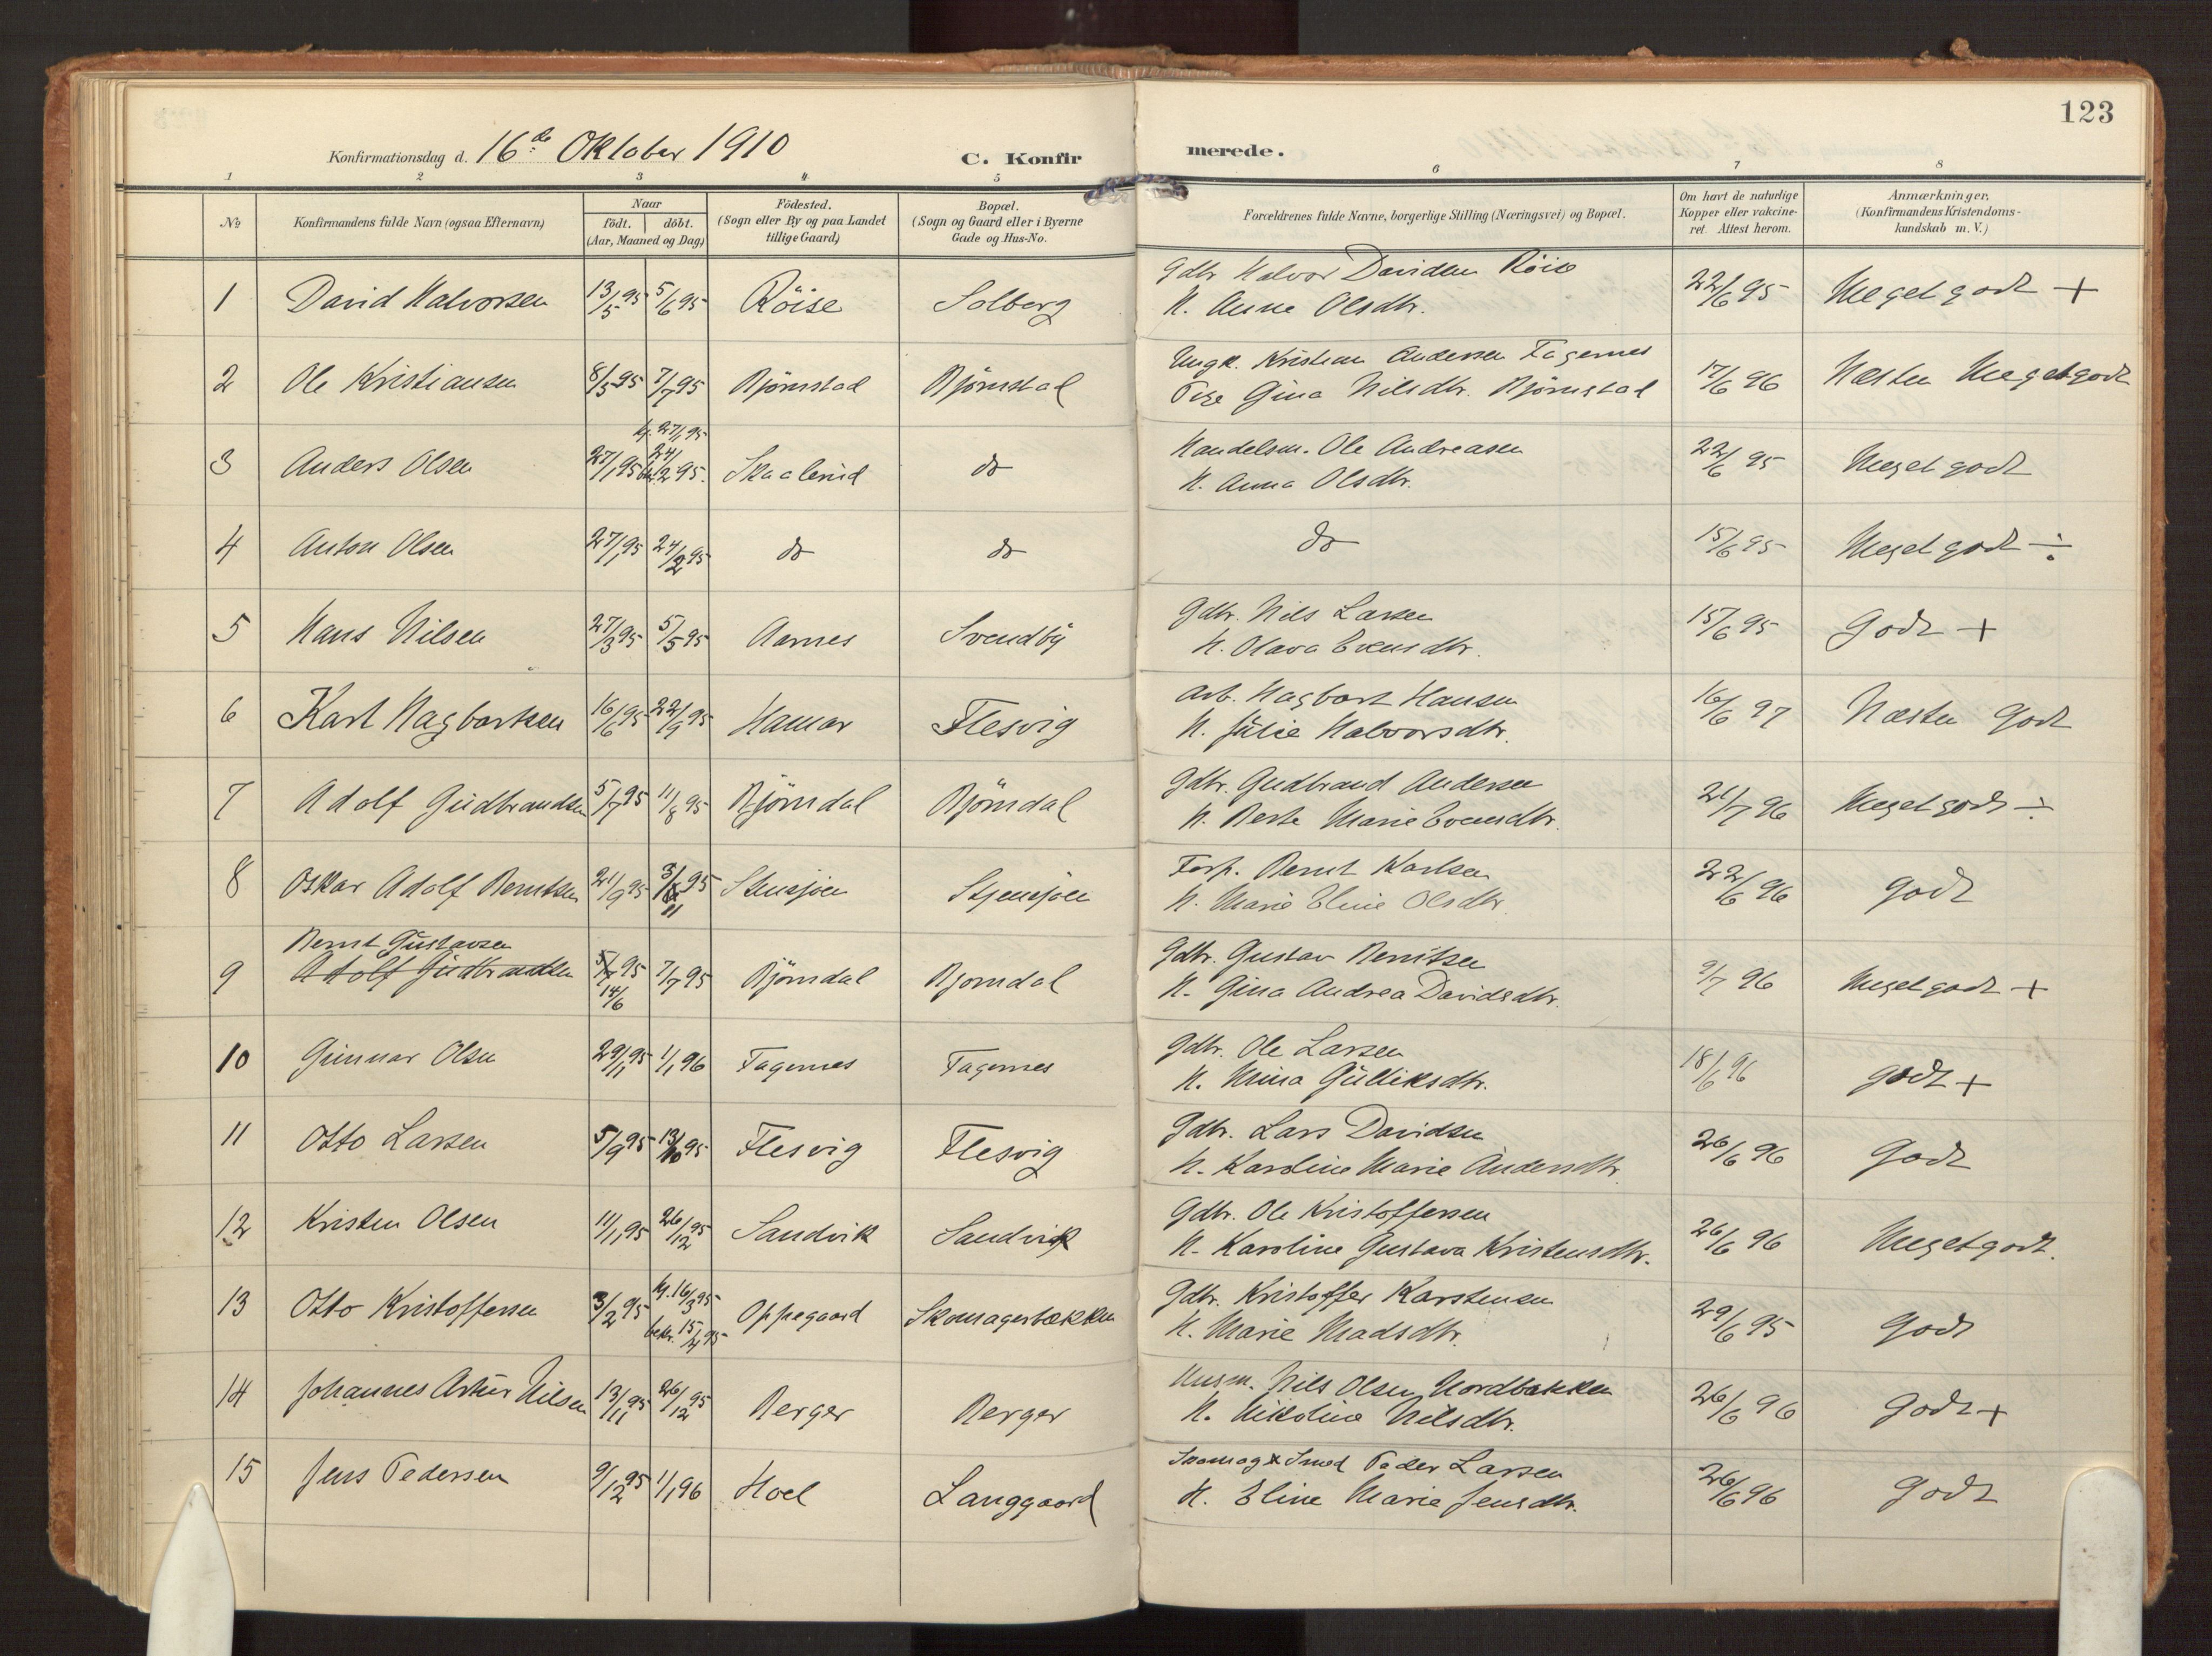 123
Konfirmationsdag d. 16de Oktober 1910 C. Konfirmerede.
1 2 3 4 5 6 7 8
No Konfirmandens fulde Navn (ogsaa Efternavn) Naar födt. döbt. (Aar, Maaned og Dag) Födested. (Sogn eller By og paa Landet tillige Gaard) Bopæl. (Sogn og Gaard eller i Byerne Gade og Hus-No. Forældrenes fulde Navne, borgerlige Stilling (Næringsvei) og Bopæl. Om havt de naturlige Kopper eller vakcineret. Attest herom. Anmærkninger, (Konfirmandens Kristendomskundskab m. V.)
1 David Halvorsen 13/5 95 5/6 95 Röise Solberg Gdbr. Halvor Davidsen Röise
H. Anne Olsdtr. 22/6 95 Meget godt +
2 Ole Kristiansen 8/5 95 7/7 95 Björnstad Björnstad Ungk. Kristian Andersen Fagernes
Pige Gina Nilsdtr. Björnstad 17/6 96 Næsten Meget godt
3 Anders Olsen 27/1 95 hj. 27/1 95 24/2 95. Skaalerud do Handelsm. Ole Andreasen
H. Anna Olsdtr. 22/6 95 Meget godt
4 Anton Olsen 27/1 95 24/2 95 do do do 15/6 95 Meget godt ÷
5 Hans Nilsen 27/3 95 5/5 95 Aarnes Svendby Gdbr. Nils Larsen
H. Olava Evensdtr. 15/6 95 Godt +
6 Karl Hagbartsen 16/6 95 22/9 95 Hamar Flesvig Arb. Hagbart Hansen
H. Julie Halvorsdtr. 16/6 97 Næsten Godt
7 Adolf Gudbrandsen 5/7 95 11/8 95 Björndal Björndal Gdbr. Gudbrand Andersen
H. Berte Marie Evensdtr. 21/7 96 Meget godt ÷
8 Oskar Adolf Berntsen 21/9 95 3/11 95 Stensjöen Stjensjöen Forp. Bernt Karlsen
H. Marie Eline Olsdtr. 22/6 96 godt
9 Bernt Gustavsen
Adolf Gudbrandsen 5/7 95 14/6 7/7 95 Björndal Bjorndal Gdbr. Gustav Berntsen
H. Gina Andrea Davidsdtr. 9/7 96 Meget godt +
10 Gunnar Olsen 29/11 95 1/1 96 Fagernes Fagernes Gdbr. Ole Larsen
H. Mina Gulliksdtr. 18/6 96 godt +
11 Otto Larsen 5/9 95 13/10 95 Flesvig Flesvig Gdbr. Lars Davidsen
H. Karoline Marie Andersdtr. 26/6 96 Godt
12 Kristen Olsen 11/11 95 26/12 95 Sandvik Sandvik Gdbr. Ole Kristoffersen
H. Karoline Gustava Kristensdtr. 26/6 96 Meget godt.
13 Otto Kristoffersen 3/2 95 hj. 16/3 95 bekr. 15/4 95 Oppegaard Skomagerbækken Gdbr. Kristoffer Karstensen
H. Marie Madsdtr. 29/6 95 Godt
14 Johannes Artur Nilsen 13/11 95 26/12 95 Berger Berger Husm. Nils Olsen Nordbakken
H. Nikoline Nilsdtr. 26/6 96 Godt +
15 Jens Pedersen 9/12 95 1/1 96 Hoel Langgaard Skomag & Smed Peder Larsen
H. Eline Marie Jensdtr. 26/6 96 Godt